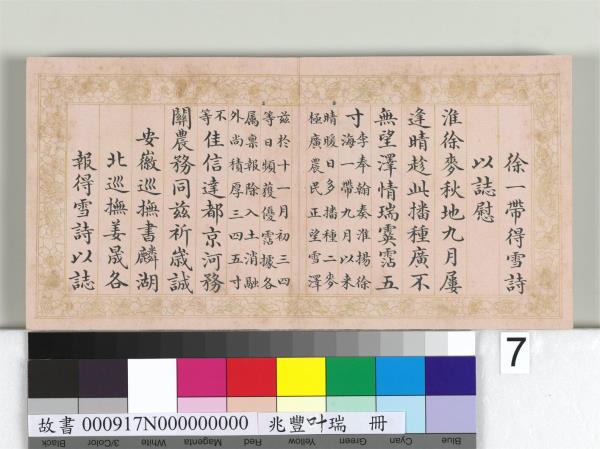 徐一帶得雪詩
以誌慰
淮徐麥秋地九月屢
逢晴趁此播種廣不
無望澤情瑞霙霑五
寸李奉翰奏淮揚徐
海一帶九月以來
晴暖日多播種二麥
極廣農民正望雪澤
茲於十一月初三四
等日頻獲優霑據各
属稟報除入土消融
外尚積厚三四五寸
不等佳信達都京河務
關農務同茲祈歲誠
安徽巡撫書麟湖
北巡撫姜晟各
報得雪詩以誌
7
故書 000917N000000000 兆豐叶瑞 冊
Black 3/Color White Magenta Red Yellow Green Cyan Blue